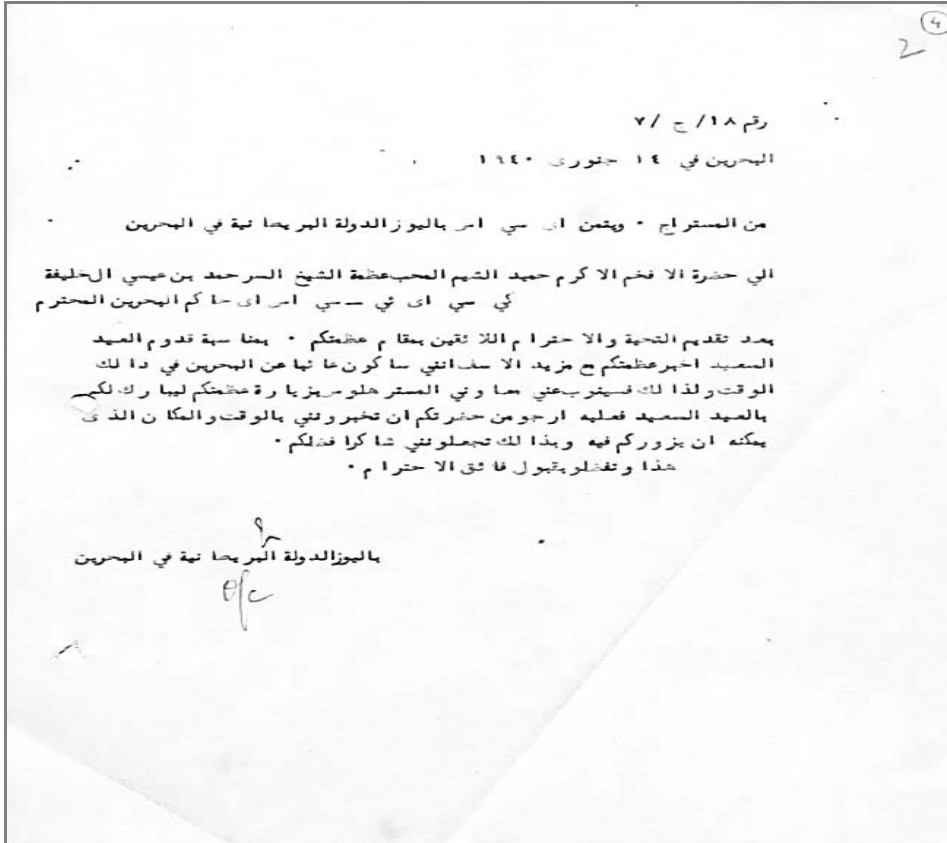 4
2
رقم ١٨/ ج /٧
البحرين في ١٤ جنورى ١٩٤٠
من المستر اج ٠ ويتمن اى سي امر باليوز الدولة البريطانية في البحرين
الي حضرة الا فخم الا كرم حميد الشيم المحب عظمة الشيخ السر حمد بن عيسي ال خليفة
كي سي اى ئي ــ سي اس اى حاكم البحرين المحترم
بعد تقديم التحية والا حترام اللا ئقين بمقام عظمتكم ٠ بمناسبة قدوم العيد
السعيد اخبر عظمتكم مع مزيد الا سف انني ساكون غائبا عن البحرين في ذالك
الوقت ولذا لك فسينوب عني معاوني المستر هلوس بزيارة عظمتكم ليبارك لكم
بالعيد السعيد فعليه ارجو من حضرتكم ان تخبروني بالوقت والمكان الذى
يمكنه ان يزوركم فيه وبذا لك تجعلونني شاكرا فضلكم ٠
هذا وتفضلو بقبول فائق الا حترام ٠
باليوز الدولة البريطانية في البحرين
O/c